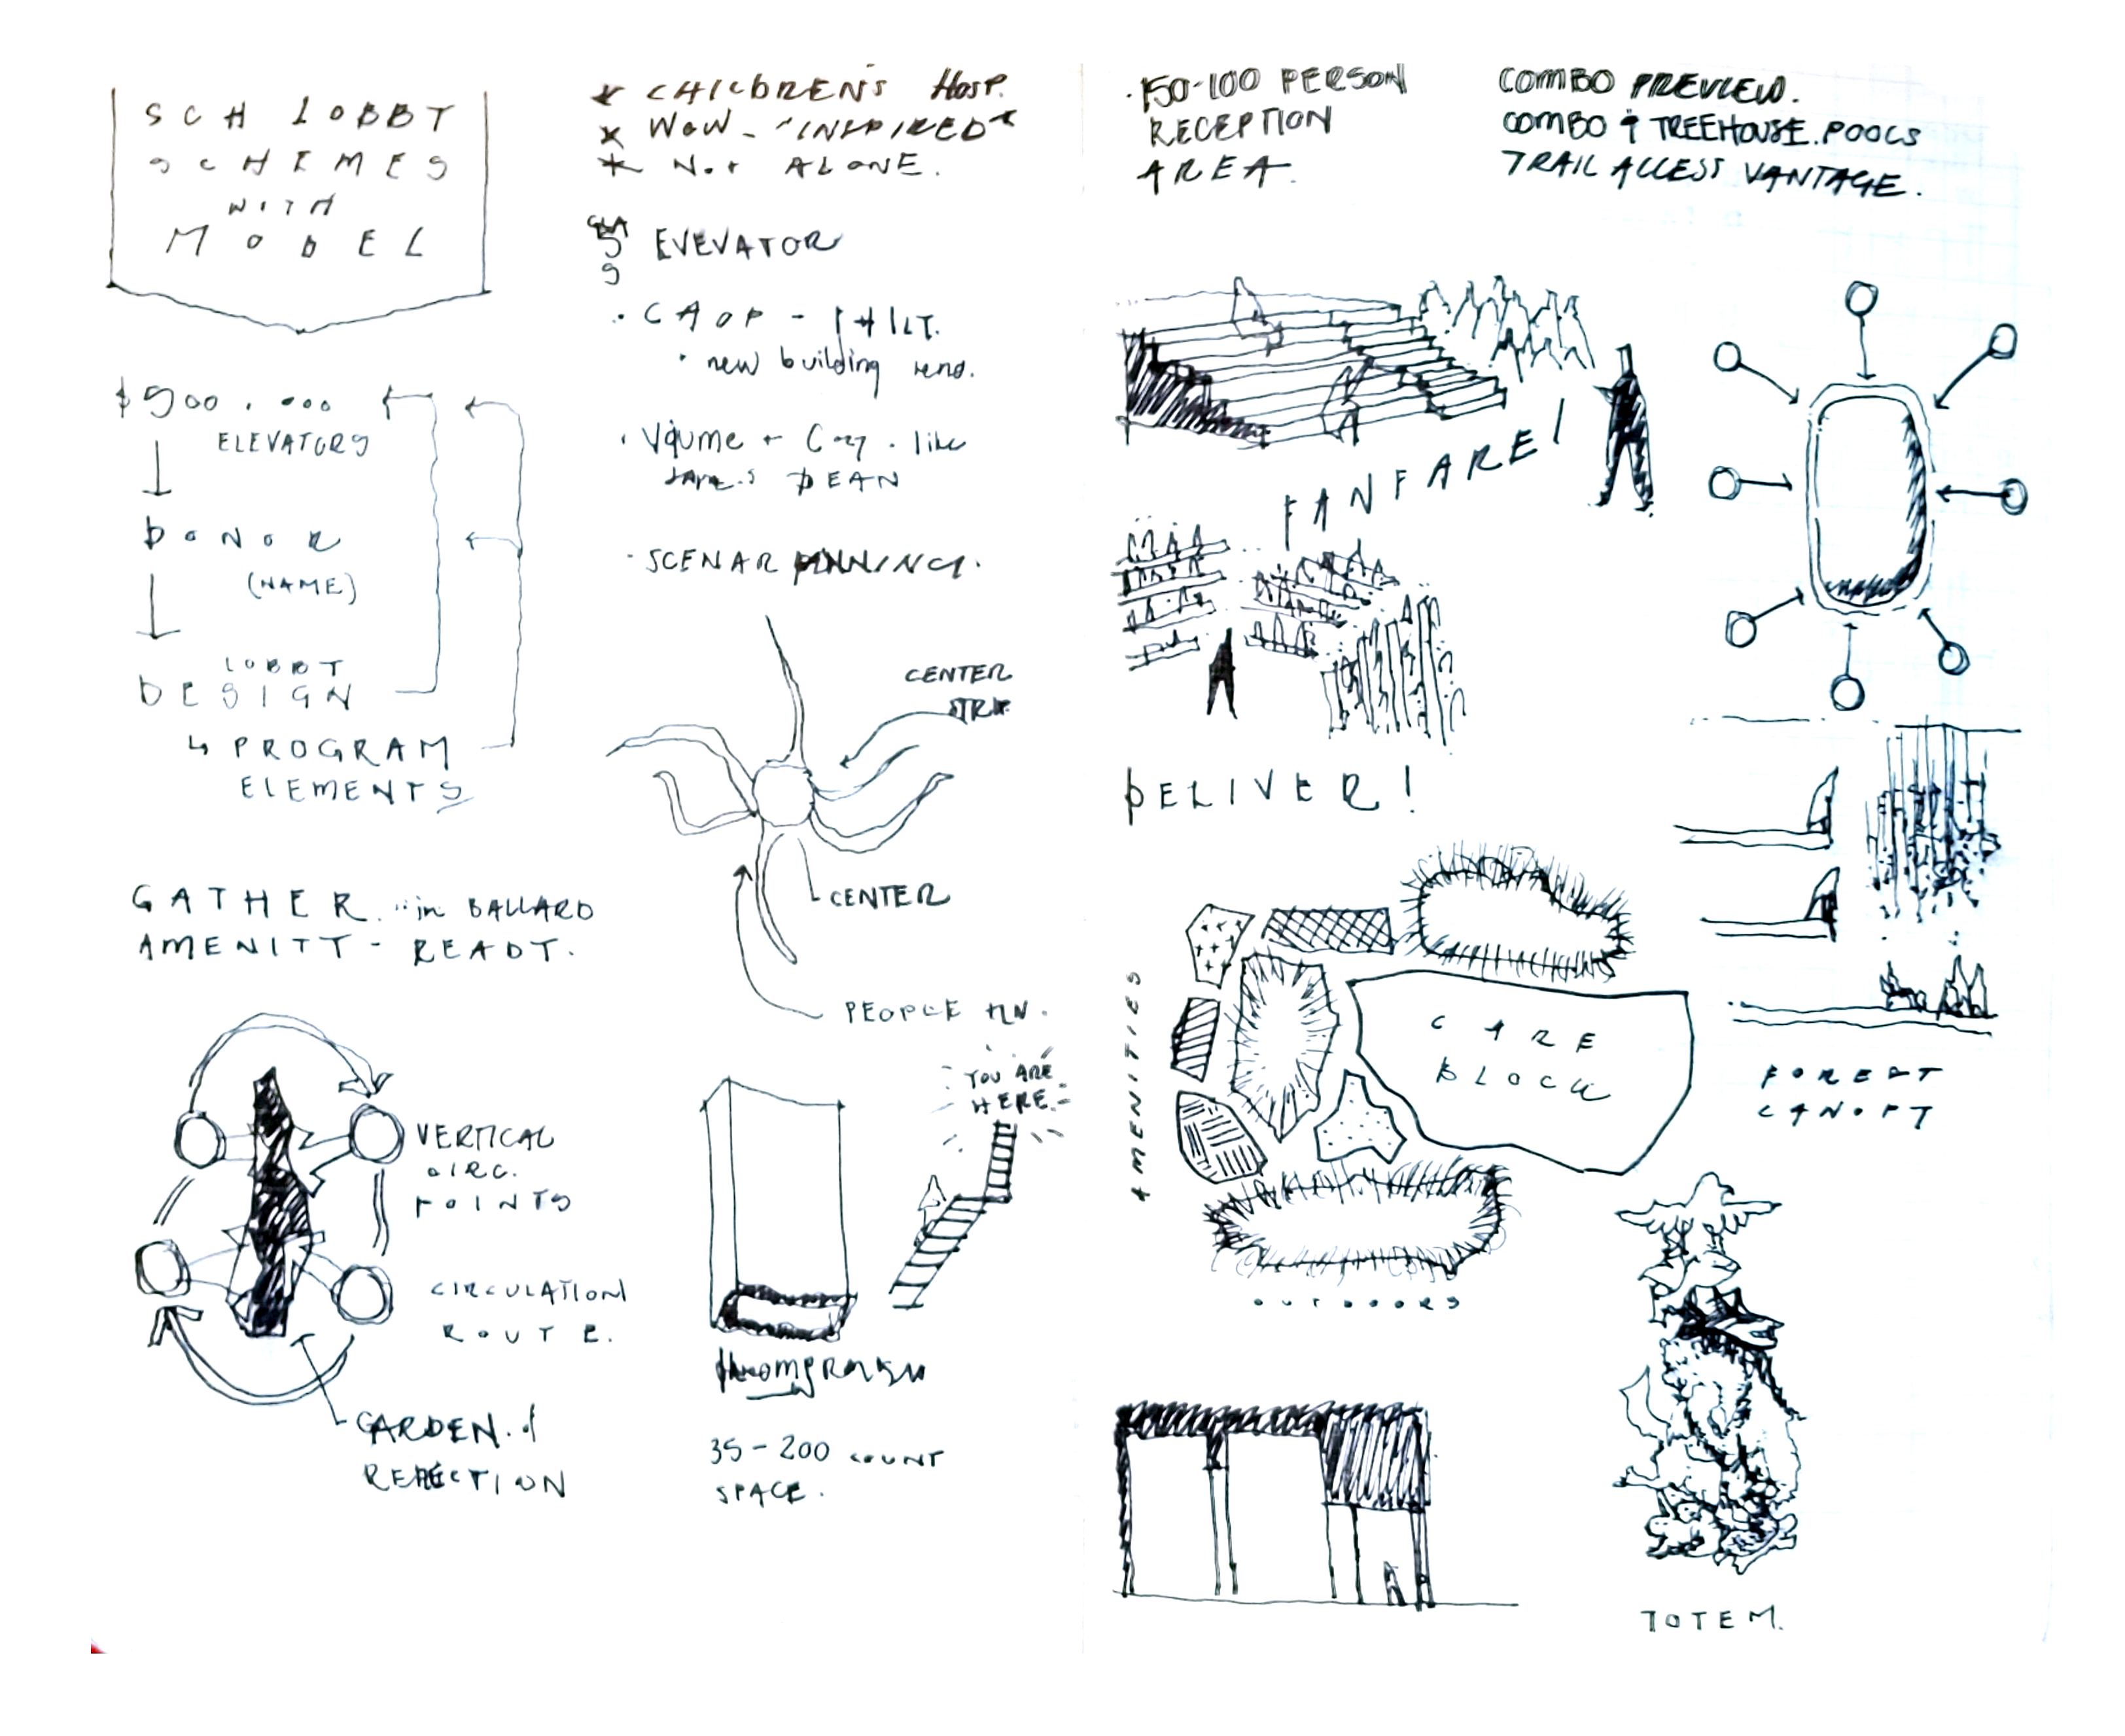 SCH LOBBY
SCHEMES
WITH
MODEL
$500,000
ELEVATORS
DONOR
(NAME)
LOBBY
DESIGN
↳ PROGRAM
ELEMENTS
GATHER. "in BALLARD
AMENITY - READY.
VERTICAL
CIRC.
POINTS
CIRCULATION
ROUTE.
GARDEN of
* CHILDREN'S HOSP.
* WOW - "INSPIRED"
* NOT ALONE.
EVEVATOR
· new building
like
DEAN
· SCENAR
CENTER
CENTER
PEOPLE
YOU ARE
HERE.
35-200 COUNT
SPACE.
· 150-100 PERSON
RECEPTION
AREA.
COMBO PREVIEW.
COMBO TREEHOUSE. POOLS
TRAIL ACCESS VANTAGE.
FANFARE!
DELIVER!
AMENITIES
CARE
BLOCK
OUTDOORS
FOREST
CANOPY
TOTEM.